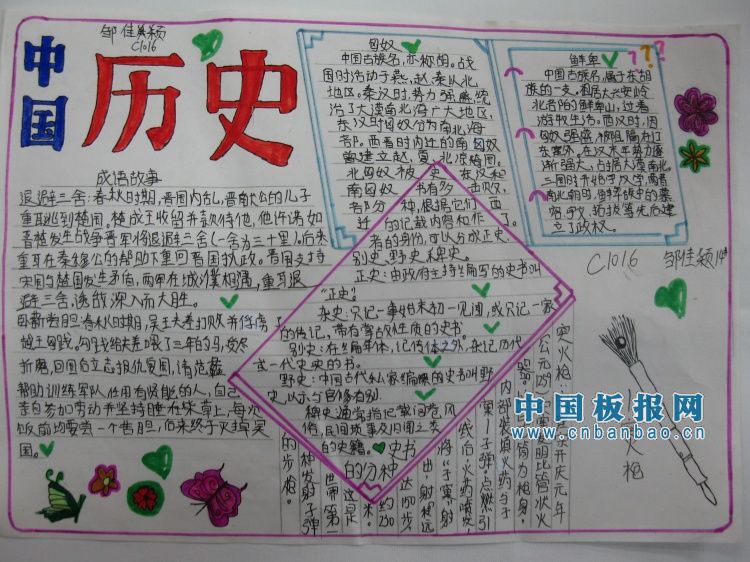 邹佳颖
C1016
中国
历史
成语故事
退避三舍:春秋时期,晋国内乱,晋献公的儿子
重耳逃到楚国。楚成王收留并款待他,他许诺如
晋楚发生战争晋军将退避三舍(一舍为三十里)。后来
重耳在秦穆公的帮助下重回晋国执政。晋国支持
宋国与楚国发生矛盾,两军在城濮相遇,重耳退
避三舍,诱敌深入而大胜。
卧薪尝胆:春秋时期,吴王夫差打败并俘虏了
越王勾践,勾践给夫差喂了三年的马,受尽
折磨,回国后立志报仇复国,请范蠡
帮助训练军队任用有贤能的人,自己
亲自参加劳动并坚持睡在柴草上,每次
饭前均要尝一个苦胆,后来终于灭掉吴
国。
匈奴
中国古族名,亦称胡。战
国时活动于燕、赵、秦以北
地区。秦汉时,势力强盛,统
治了大漠南北海广大地区,
东汉时匈奴分为南北海
部。西晋时内迁的南匈奴
曾建立赵、夏、北凉诸国。
北匈奴被
南匈奴
各部分
史书有多种,根据它们
的记载内容和作
者的身份,可以分成正史、
别史、野史、稗史。
正史:由政府主持编写的史书叫
“正史”。
杂史:只记一事始末初一见闻,或只记一家
的传记,带有掌故性质的史书。
别史:在编年体,记传体之外,杂记历代
或一代史实的书。
野史:中国古代私家编撰的史书叫野
史,以示与官修有别。
稗史通常指记载闾巷风
俗,民间琐事及旧闻之类
的史籍。
史书
的分种
鲜卑
???
中国古族名,属于东胡
族的一支。祖居大兴安岭
北部的鲜卑山,过着
游牧生活。西汉时,因
匈奴强盛,被阻隔而江
东塞外。在汉末年势力逐
渐强大,占居大漠南北,
三国时开始手入学,两晋
南北朝时,鲜卑族中的慕
容、乎文、拓拔等先后建
立了政权。
C1016 邹佳颖1情
突火枪:
东开庆元年
公元1259
中国板报网
www.cnbanbao.cn
火
枪
内部装填火药与子
窠1子弹,点燃引
线后,火药喷发,
将“子窠”射
出,射程远
达150步
约230
米。
这是
世界第一
种发射子弹
的步枪。